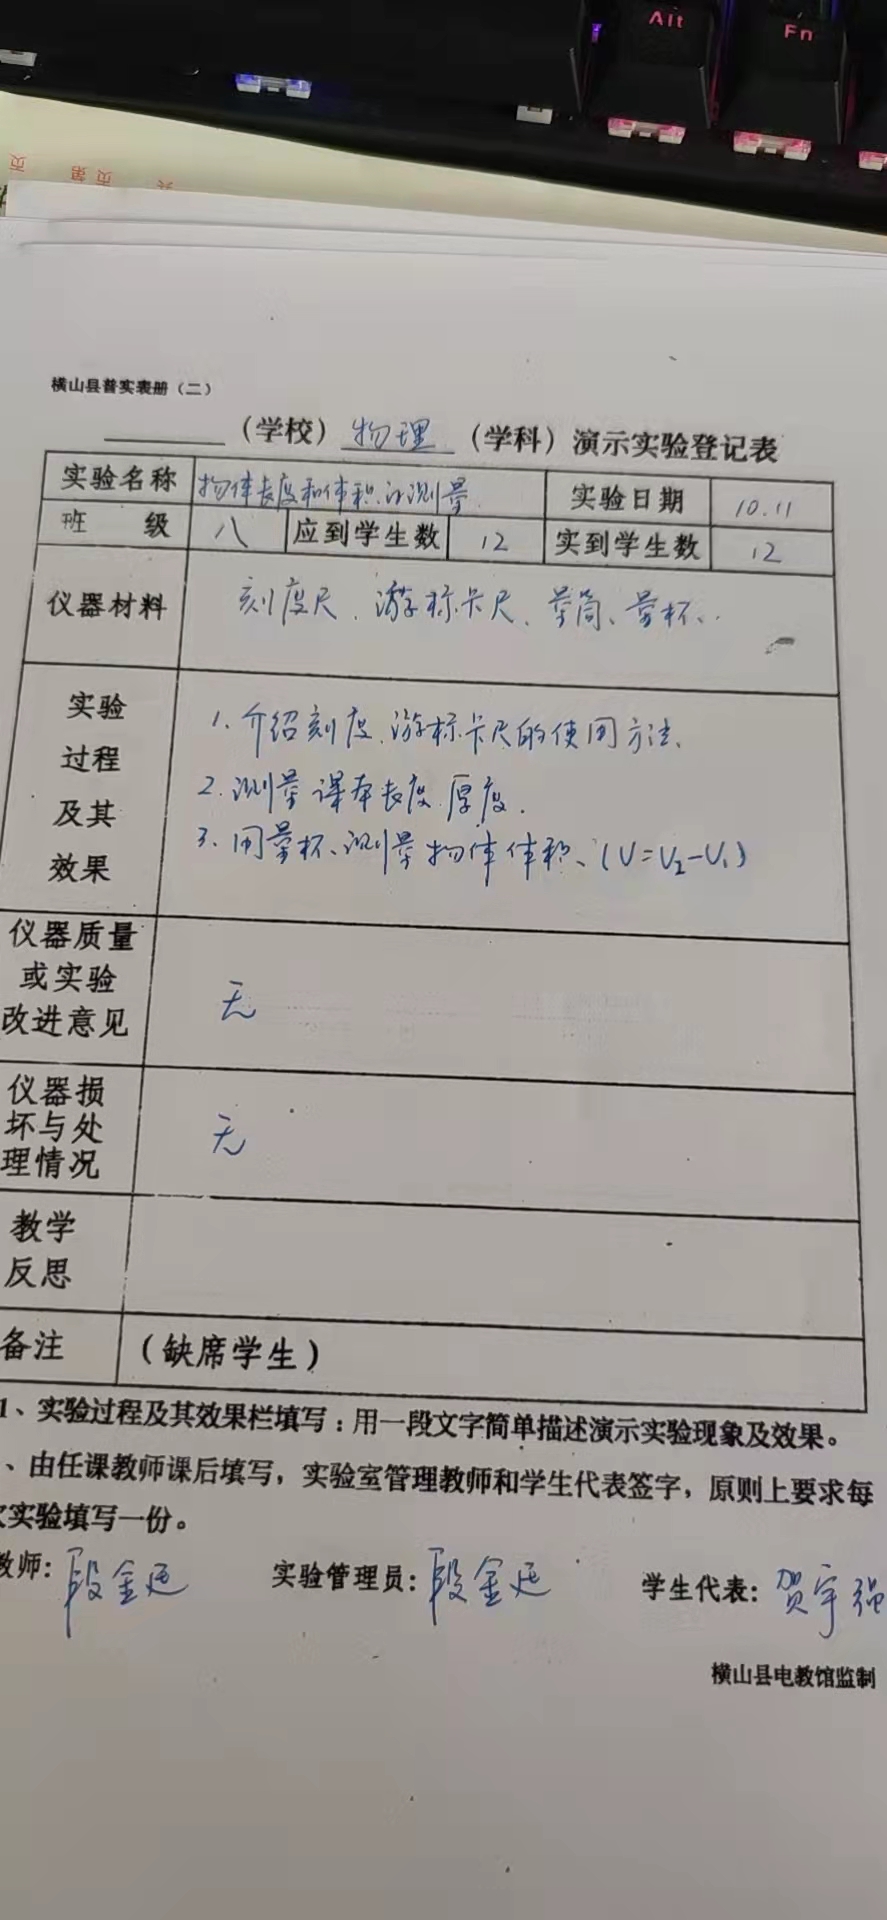 Alt
Fn
页 第 页 共
横山县普实表册（二）
（学校）物理（学科）演示实验登记表
实验名称 物体长度和体积的测量 实验日期 10.11
班 级 八 应到学生数 12 实到学生数 12
仪器材料 刻度尺、游标卡尺、量筒、量杯、
实验
过程
及其
效果
1.介绍刻度、游标卡尺的使用方法、
2.测量课本长度、厚度.
3.用量杯、测量物体体积、(V=V₂-V₁)
仪器质量
或实验
改进意见
无
仪器损
坏与处
理情况
无
教学
反思
备注 （缺席学生）
1、实验过程及其效果栏填写：用一段文字简单描述演示实验现象及效果。
、由任课教师课后填写，实验室管理教师和学生代表签字，原则上要求每
实验填写一份。
教师：段金廷 实验管理员：段金廷 学生代表：贺宇强
横山县电教馆监制